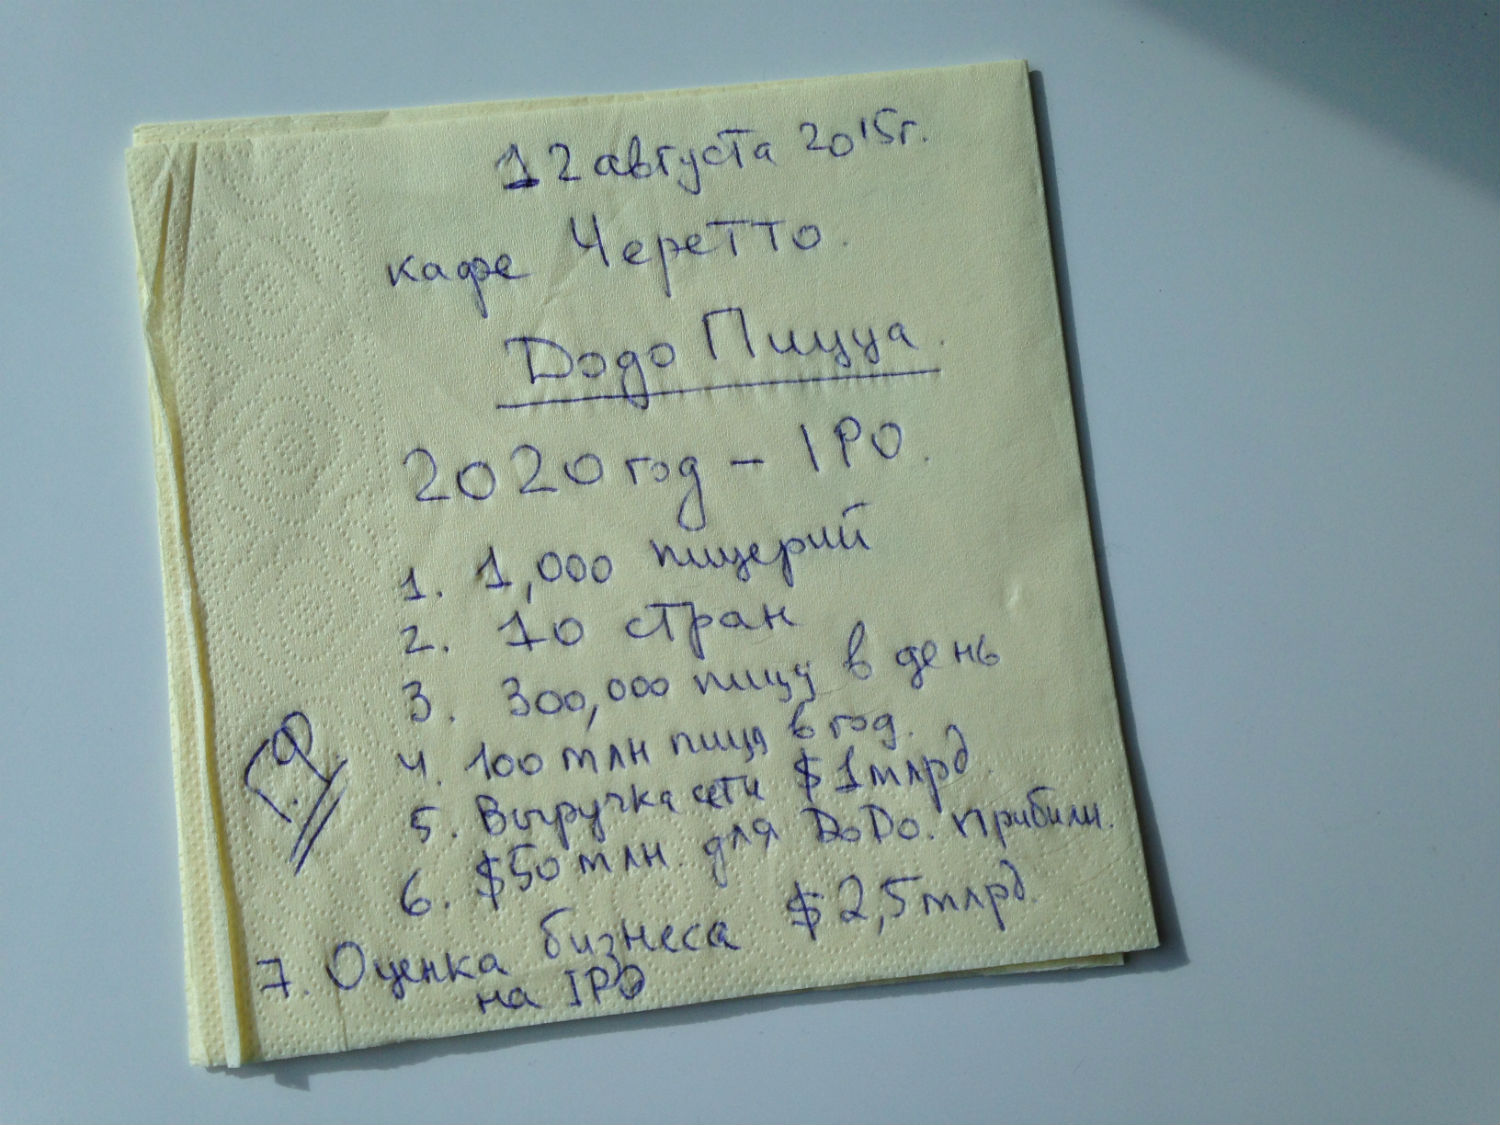 12 августа 2015г.
кафе Черетто.
Додо Пицца.
2020 год - IPO.
1. 1,000 пицерий
2. 10 стран
3. 300,000 пицц в день
4. 100 млн пицц в год.
5. Выручка сети $1 млрд
6. $50 млн. для DoDo. прибыли.
7. Оценка бизнеса $2,5 млрд.
на IPO